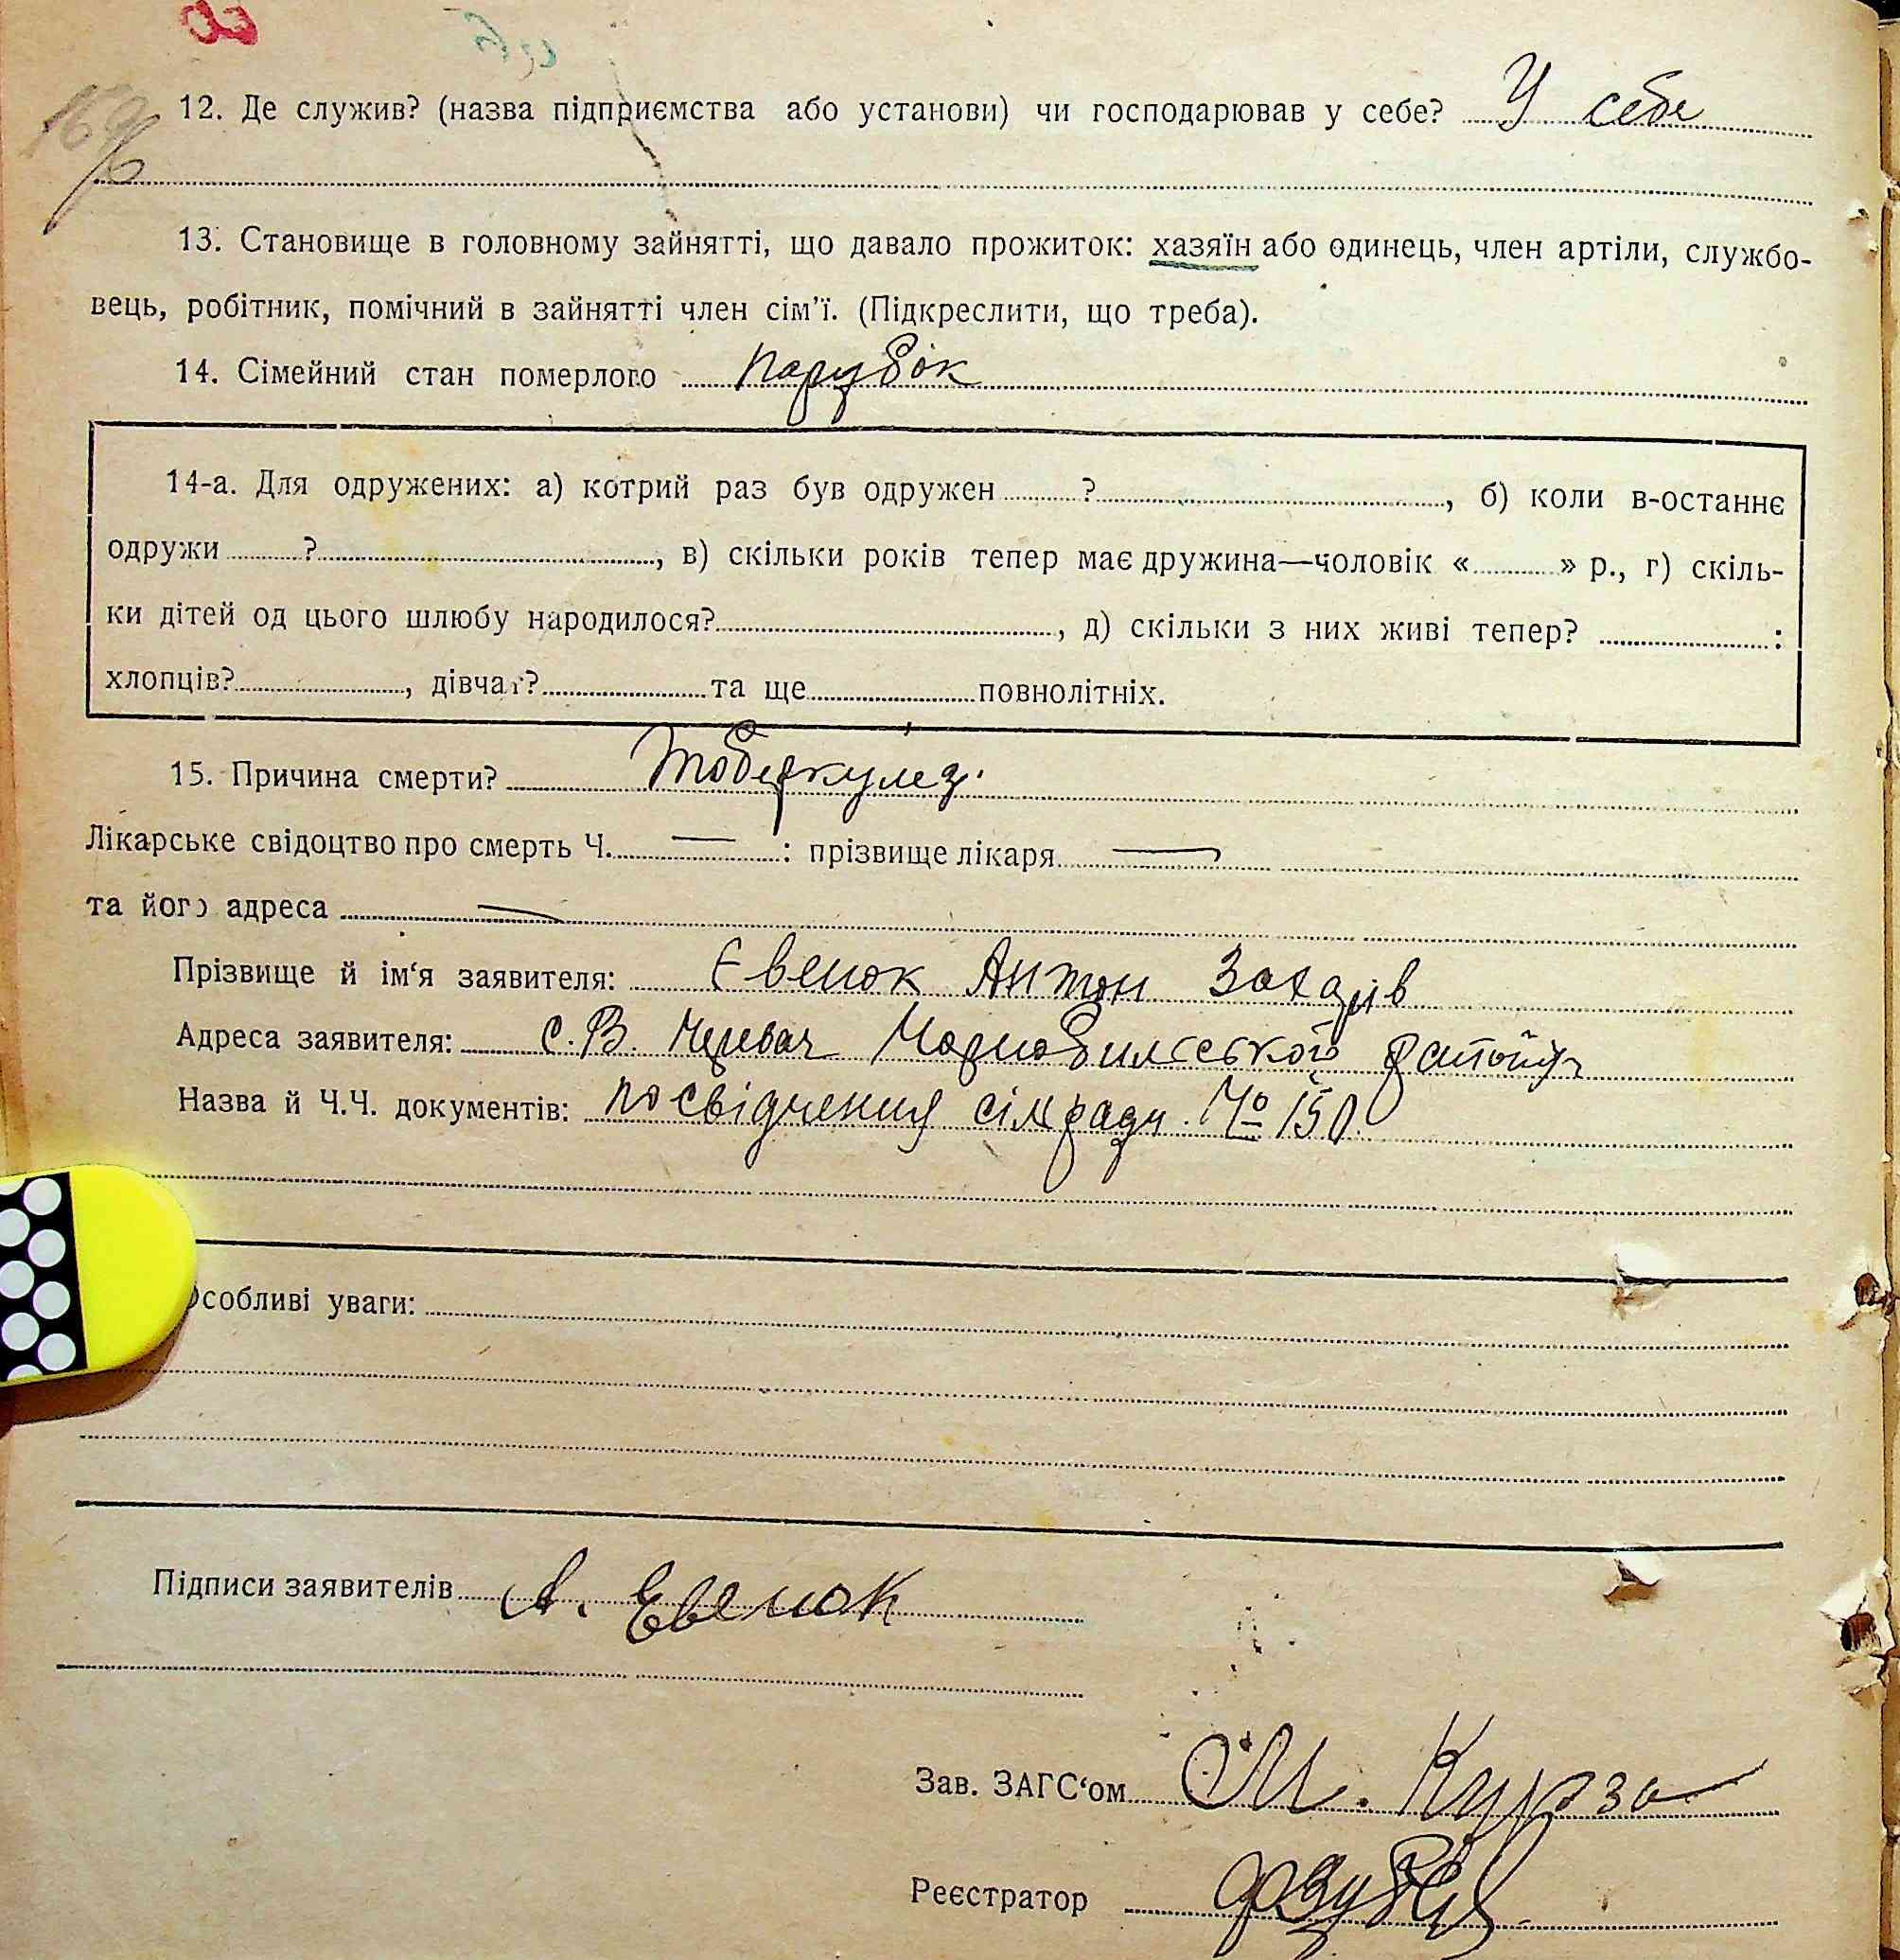 12. Де служив? (назва підприємства або установи) чи господарював у себе? У себе
13. Становище в головному зайнятті, що давало прожиток: хазяїн або одинець, член артіли, службо-
вець, робітник, помічний в зайнятті член сім'ї. (Підкреслити, що треба).
14. Сімейний стан померлого парубок
14-а. Для одружених: а) котрий раз був одружен ?, б) коли в-останнє
одружи ?, в) скільки років тепер має дружина—чоловік « » р., г) скіль-
ки дітей од цього шлюбу народилося?, д) скільки з них живі тепер? :
хлопців?, дівчат? та ще повнолітніх.
15. Причина смерти? Тоберкулез.
Лікарське свідоцтво про смерть Ч. — : прізвище лікаря —
та його адреса —
Прізвище й ім'я заявителя: Євенок Антон Захарів
Адреса заявителя: с. В. Черевач Чорнобильського району
Назва й Ч.Ч. документів: посвідчення сільради № 150
Особливі уваги:
Підписи заявителів А. Евенок
Зав. ЗАГС'ом
Реєстратор